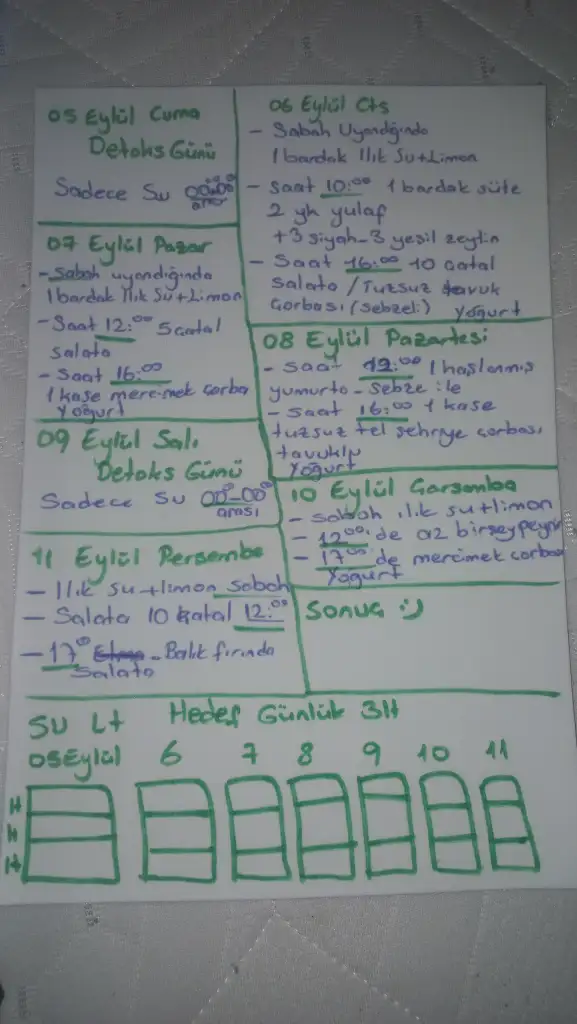 05 Eylül Cuma
Detoks Günü
Sadece Su 00:00
arası
06 Eylül Cts
- Sabah Uyandığında
1 bardak Ilık Su+Limon
- Saat 10:00 1 bardak süte
2 yk yulaf
+3 siyah-3 yeşil zeytin
- Saat 16:00 10 çatal
salata / Tuzsuz tavuk
çorbası (sebzeli) Yoğurt
07 Eylül Pazar
- Sabah uyandığında
1 bardak Ilık Su+Limon
- Saat 12:00 5 çatal
salata
- Saat 16:00
1 kase mercimek çorba
Yoğurt
08 Eylül Pazartesi
- Saat 12:00 1 haşlanmış
yumurta - Sebze ile
- Saat 16:00 1 kase
tuzsuz tel şehriye çorbası
tavuklu
Yoğurt
09 Eylül Salı
Detoks Günü
Sadece Su 00:00-00:00
arası
10 Eylül Çarşamba
- Sabah ılık su+limon
- 12:00 de az birşey peynir
- 17:00 de mercimek çorba
Yoğurt
11 Eylül Perşembe
- Ilık su+limon sabah
- Salata 10 çatal 12:00
- 17:00 Elma - Balık fırında
Salata
SONUÇ :)
SU Lt Hedef Günlük 3lt
05 Eylül 6 7 8 9 10 11
lt
lt
lt